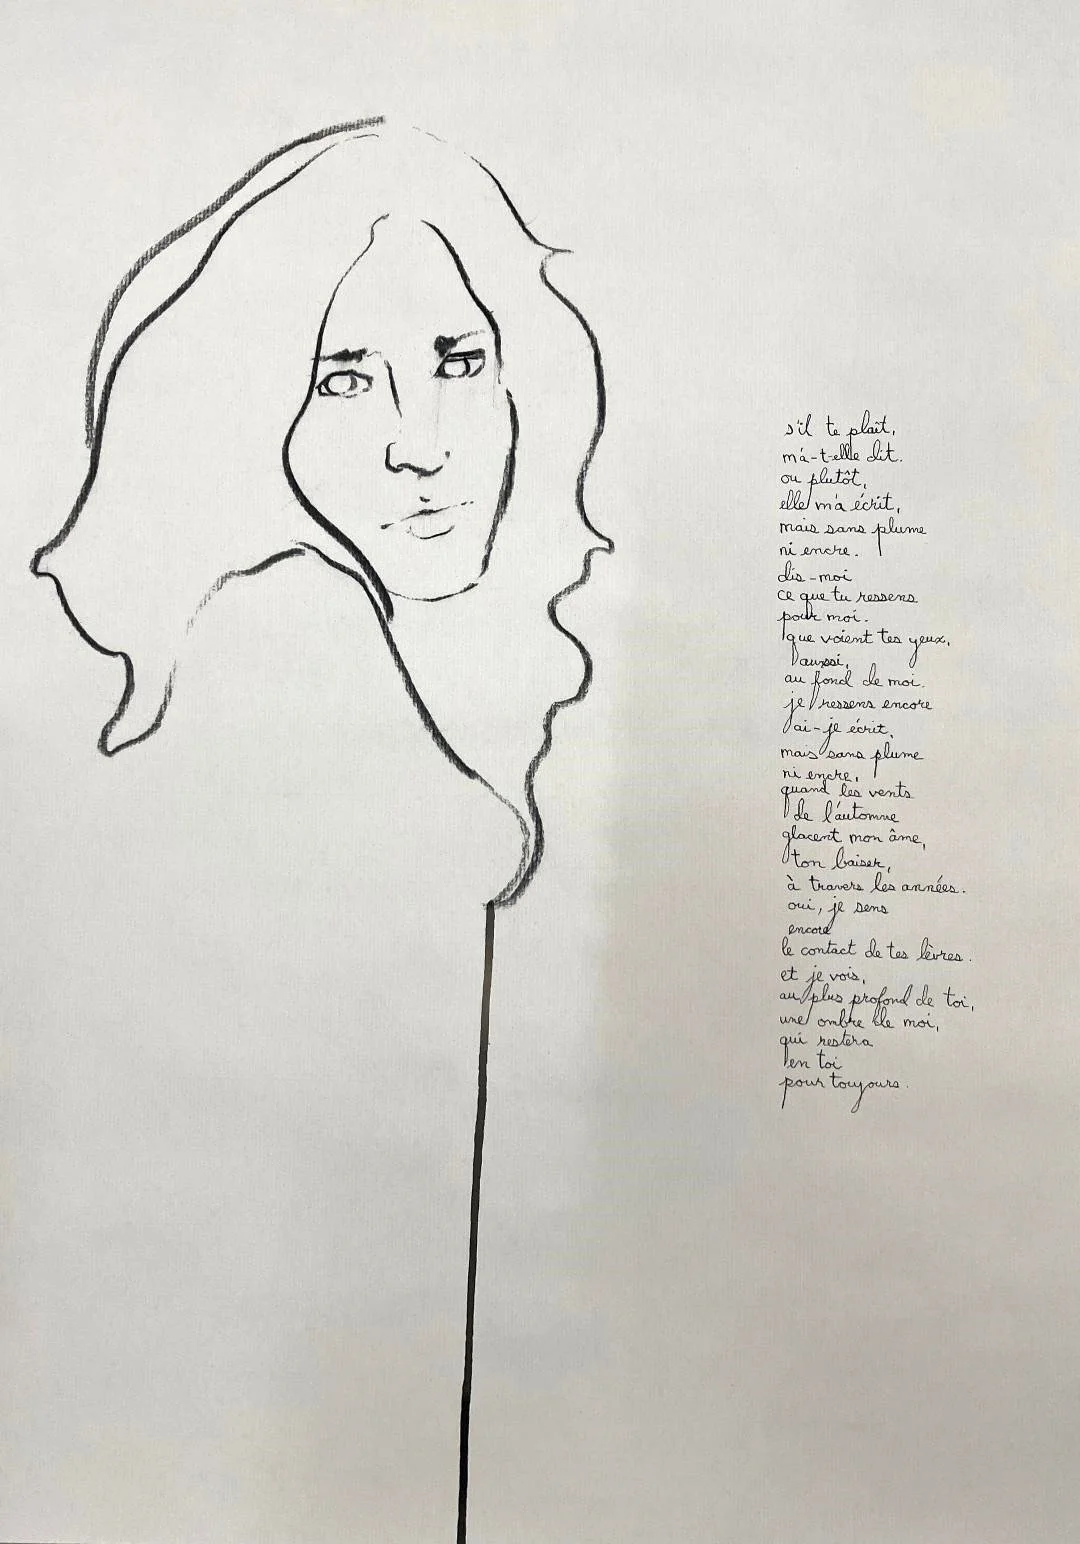 s'il te plaît,
m'a-t-elle dit.
ou plutôt,
elle m'a écrit,
mais sans plume
ni encre.
dis-moi
ce que tu ressens
pour moi.
que voient tes yeux,
aussi,
au fond de moi.
je ressens encore
ai-je écrit,
mais sans plume
ni encre,
quand les vents
de l'automne
glacent mon âme,
ton baiser,
à travers les années.
oui, je sens
encore
le contact de tes lèvres.
et je vois,
au plus profond de toi,
une ombre de moi,
qui restera
en toi
pour toujours.